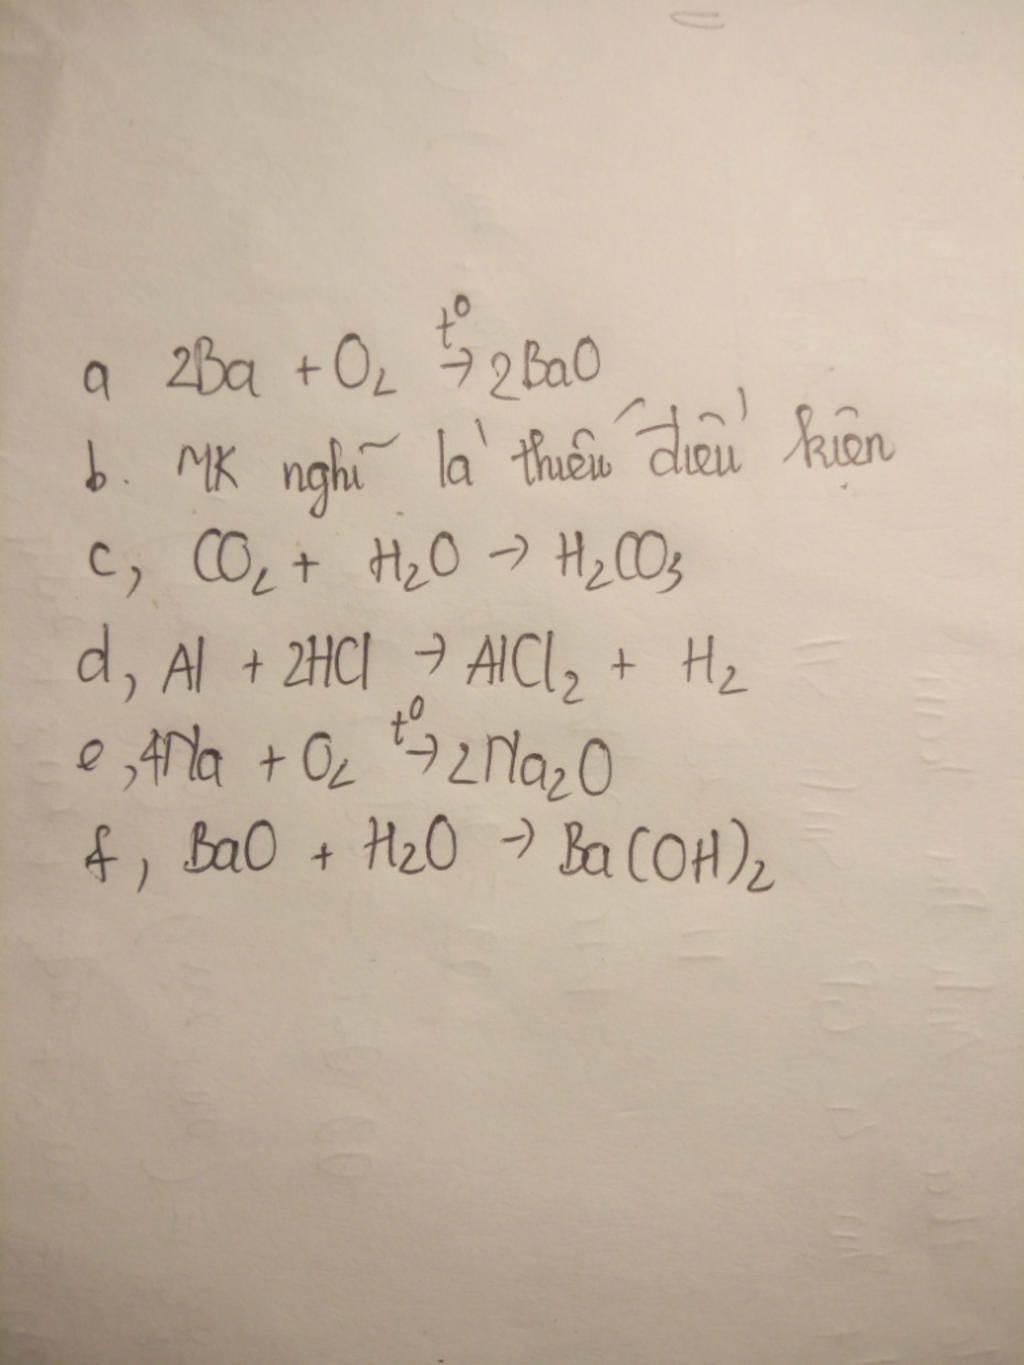 a 2Ba + O₂ t⁰→ 2BaO
b. MK nghĩ là thiếu điều kiện
c, CO₂ + H₂O → H₂CO₃
d, Al + 2HCl → AlCl₂ + H₂
e, 4Na + O₂ t⁰→ 2Na₂O
f, BaO + H₂O → Ba(OH)₂